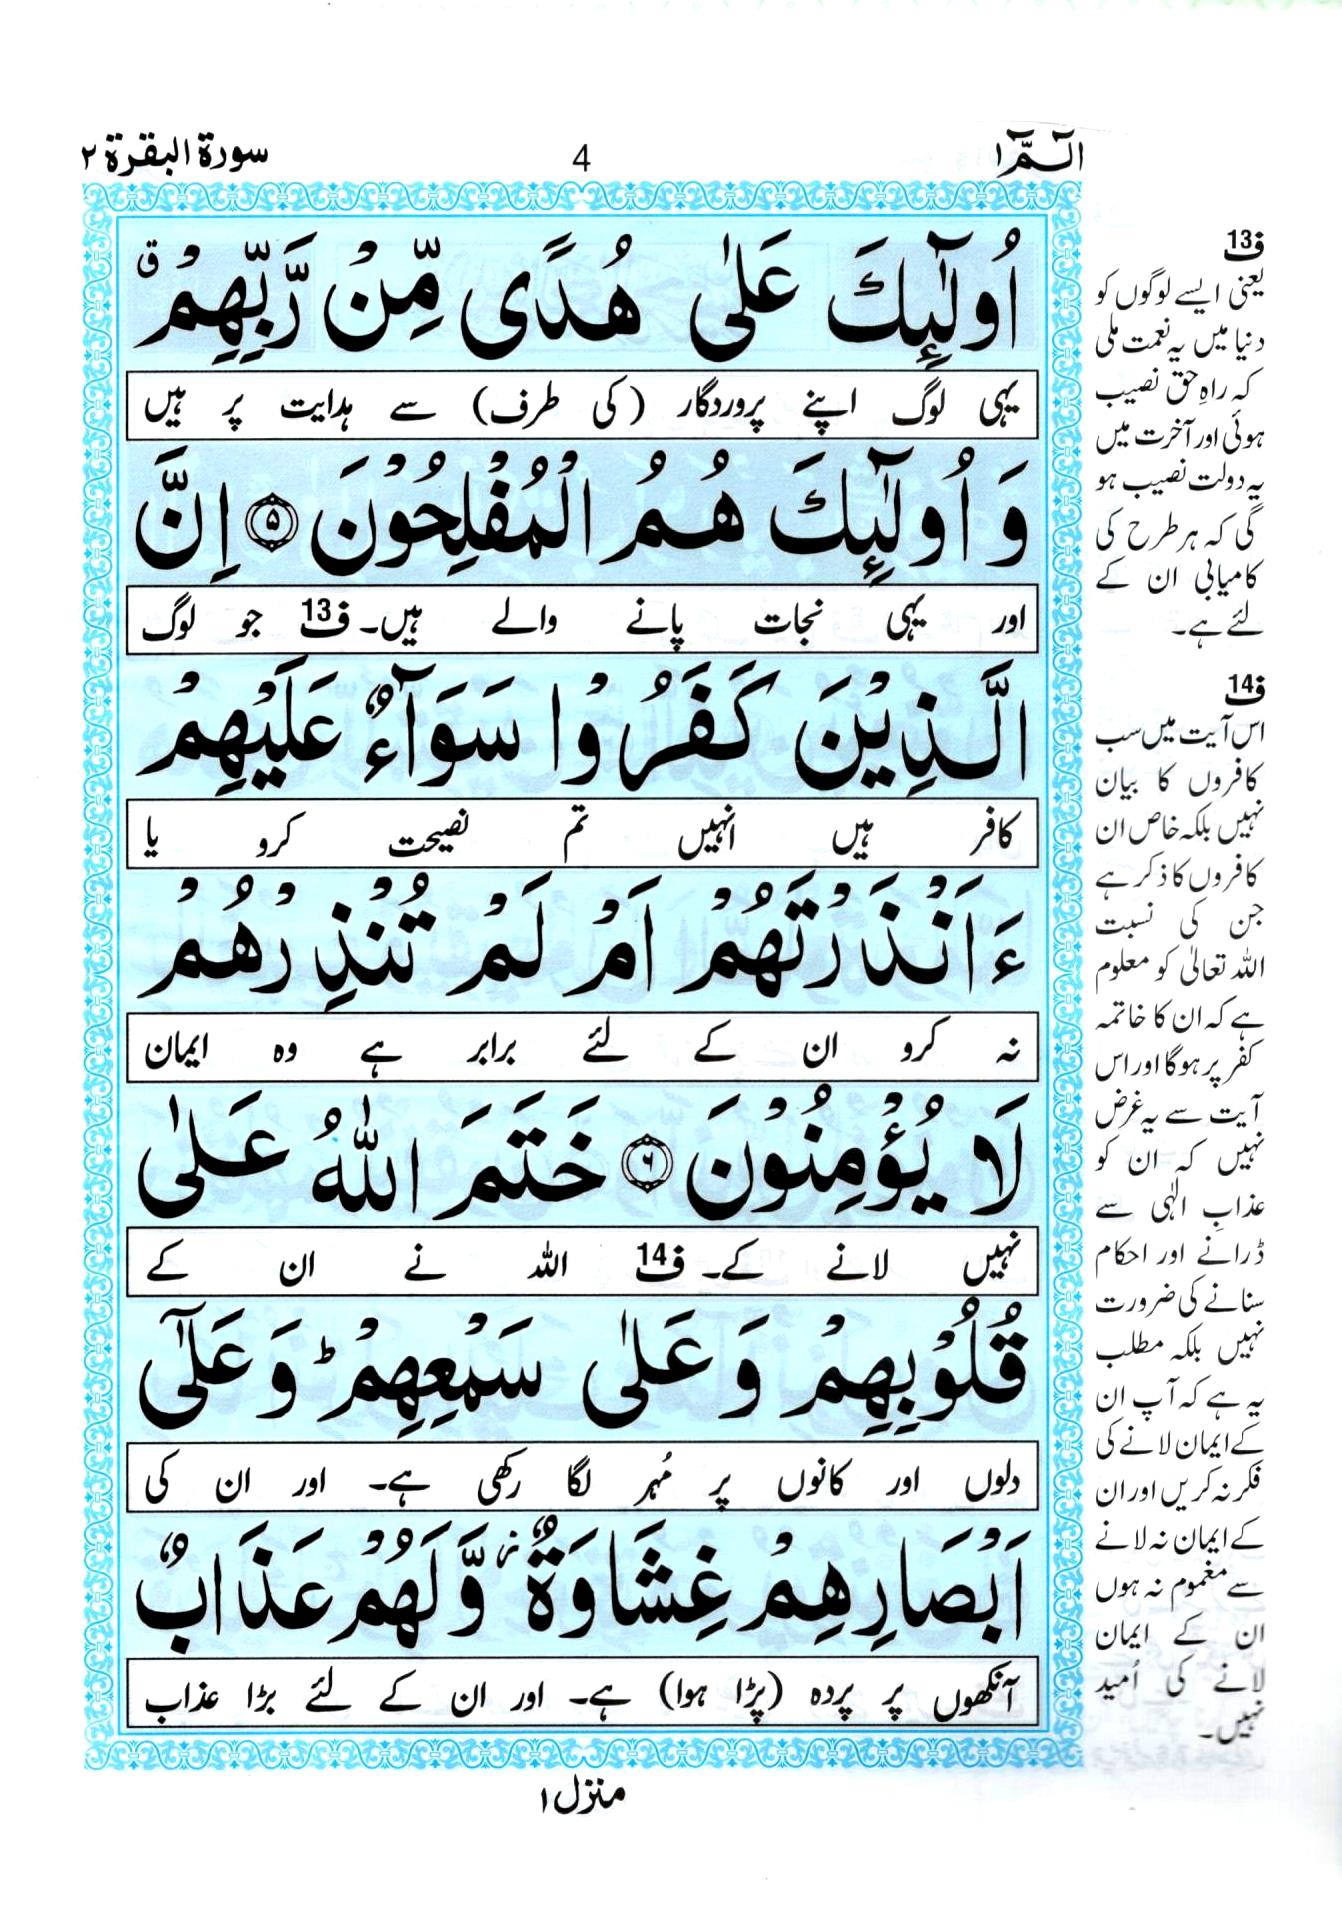 الٓـمّٓ ۱
4
سورة البقرة ۲
اُولٰٓئِكَ عَلٰى هُدًى مِّنْ رَّبِّهِمْ ۗ
یہی لوگ اپنے پروردگار (کی طرف) سے ہدایت پر ہیں
وَ اُولٰٓئِكَ هُمُ الْمُفْلِحُوْنَ ۵ اِنَّ
اور یہی نجات پانے والے ہیں۔ ف13 جو لوگ
الَّذِيْنَ كَفَرُوْا سَوَآءٌ عَلَيْهِمْ
کافر ہیں انہیں تم نصیحت کرو یا
ءَاَنْذَرْتَهُمْ اَمْ لَمْ تُنْذِرْهُمْ
نہ کرو ان کے لئے برابر ہے وہ ایمان
لَا يُؤْمِنُوْنَ ۶ خَتَمَ اللّٰهُ عَلٰى
نہیں لانے کے۔ ف14 اللہ نے ان کے
قُلُوْبِهِمْ وَ عَلٰى سَمْعِهِمْ ؕ وَ عَلٰٓى
دلوں اور کانوں پر مُہر لگا رکھی ہے۔ اور ان کی
اَبْصَارِهِمْ غِشَاوَةٌ ز وَّ لَهُمْ عَذَابٌ
آنکھوں پر پردہ (پڑا ہوا) ہے۔ اور ان کے لئے بڑا عذاب
ف13
یعنی ایسے لوگوں کو
دنیا میں یہ نعمت ملی
کہ راہِ حق نصیب
ہوئی اور آخرت میں
یہ دولت نصیب ہو
گی کہ ہر طرح کی
کامیابی ان کے
لئے ہے۔
ف14
اس آیت میں سب
کافروں کا بیان
نہیں بلکہ خاص ان
کافروں کا ذکر ہے
جن کی نسبت
اللہ تعالیٰ کو معلوم
ہے کہ ان کا خاتمہ
کفر پر ہوگا اور اس
آیت سے یہ غرض
نہیں کہ ان کو
عذابِ الٰہی سے
ڈرانے اور احکام
سنانے کی ضرورت
نہیں بلکہ مطلب
یہ ہے کہ آپ ان
کے ایمان لانے کی
فکر نہ کریں اور ان
کے ایمان نہ لانے
سے مغموم نہ ہوں
ان کے ایمان
لانے کی اُمید
نہیں۔
منزل ۱